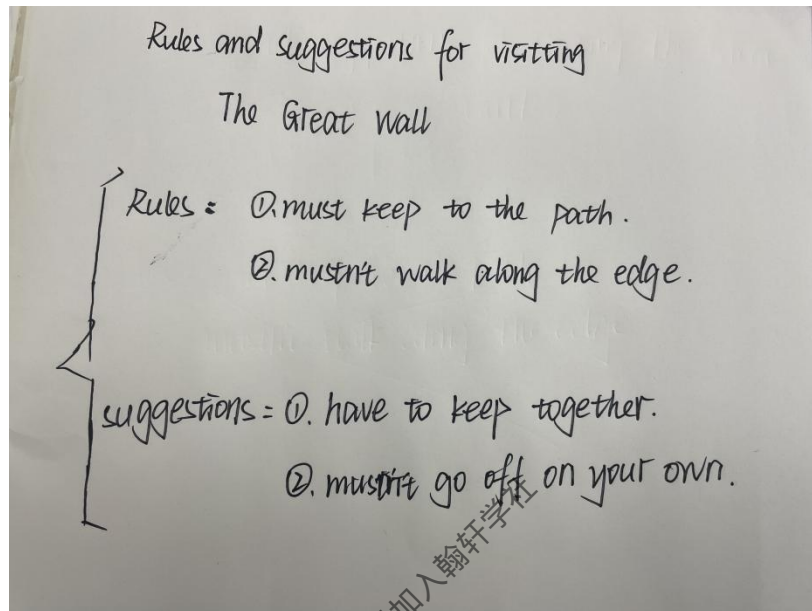 Rules and suggestions for visitting
The Great Wall
Rules: ①. must keep to the path.
②. mustn't walk along the edge.
suggestions: ①. have to keep together.
②. mustn't go off on your own.
加入翰轩学社